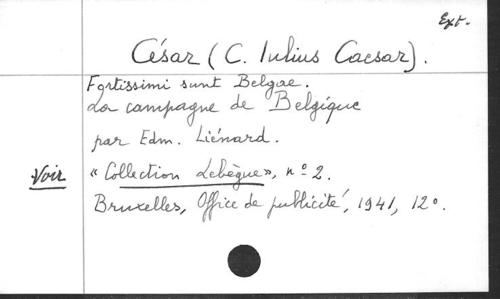 Ext.
César (C. Iulius Caesar).
Fortissimi sunt Belgae.
La campagne de Belgique
par Edm. Liénard.
Voir « Collection Lebègue », nº 2.
Bruxelles, Office de publicité, 1941, 12º.